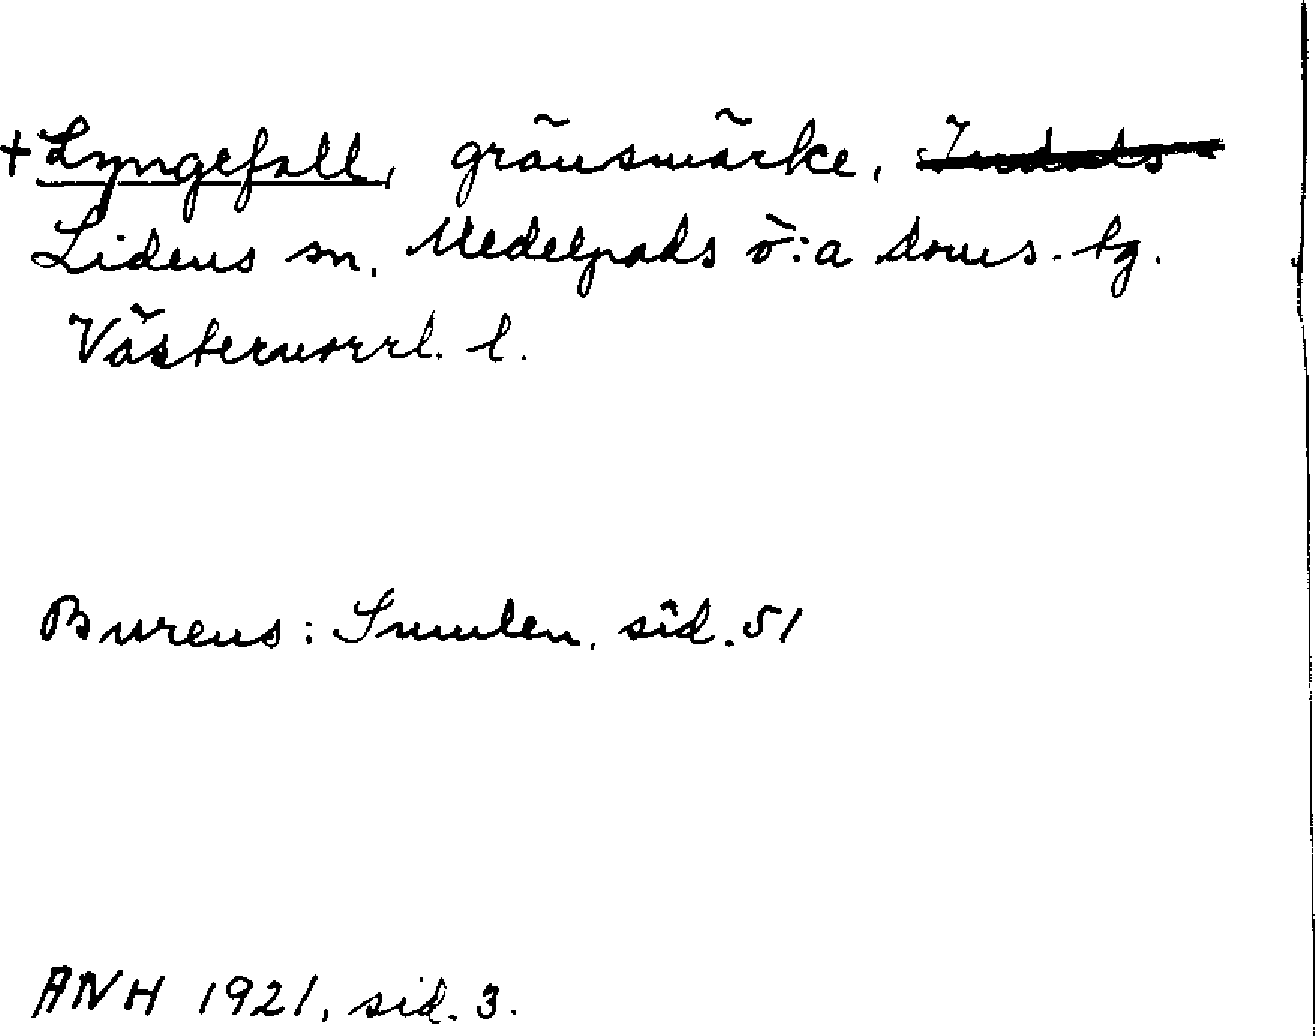 + Lyngefall, gränsmärke, Indals
Lidens sn, Medelpads ö:a doms. tg.
Västernorrl. l.
Bureus: Sumlen, sid. 51
ANH 1921, sid. 3.